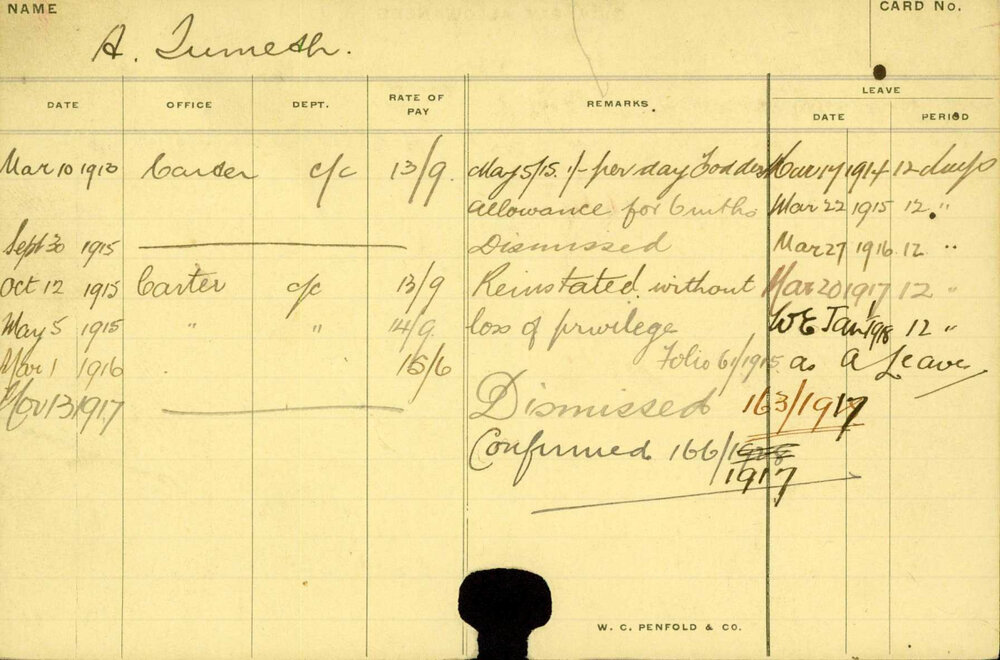 NAME
CARD No.
A.
DATE OFFICE DEPT. RATE OF PAY REMARKS. LEAVE
DATE PERIOD
Mar 10 1913 Carter c/c 13/9. May 5/15. 1/- per day Fodder Mar 17 1914 12 days
allowance for 6 mths Mar 22 1915 12 "
Sept 30 1915 Dismissed Mar 27 1916 12 "
Oct 12 1915 Carter c/c 13/9 Reinstated without Mar 20 1917 12 "
May 5 1915 " " 14/9. loss of privilege WE Jan 1918 12 "
Mar 1 1916 15/6 Folio 61/1915 as A Leave
Nov 13 1917 Dismissed 163/1917
Confirmed 166/
1917
W. C. PENFOLD & CO.